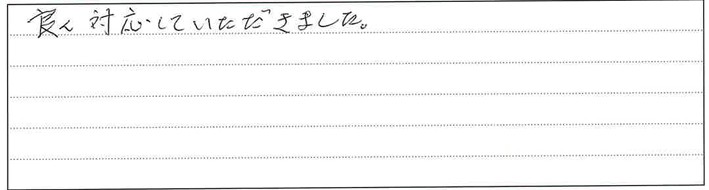 良く対応していただきました。